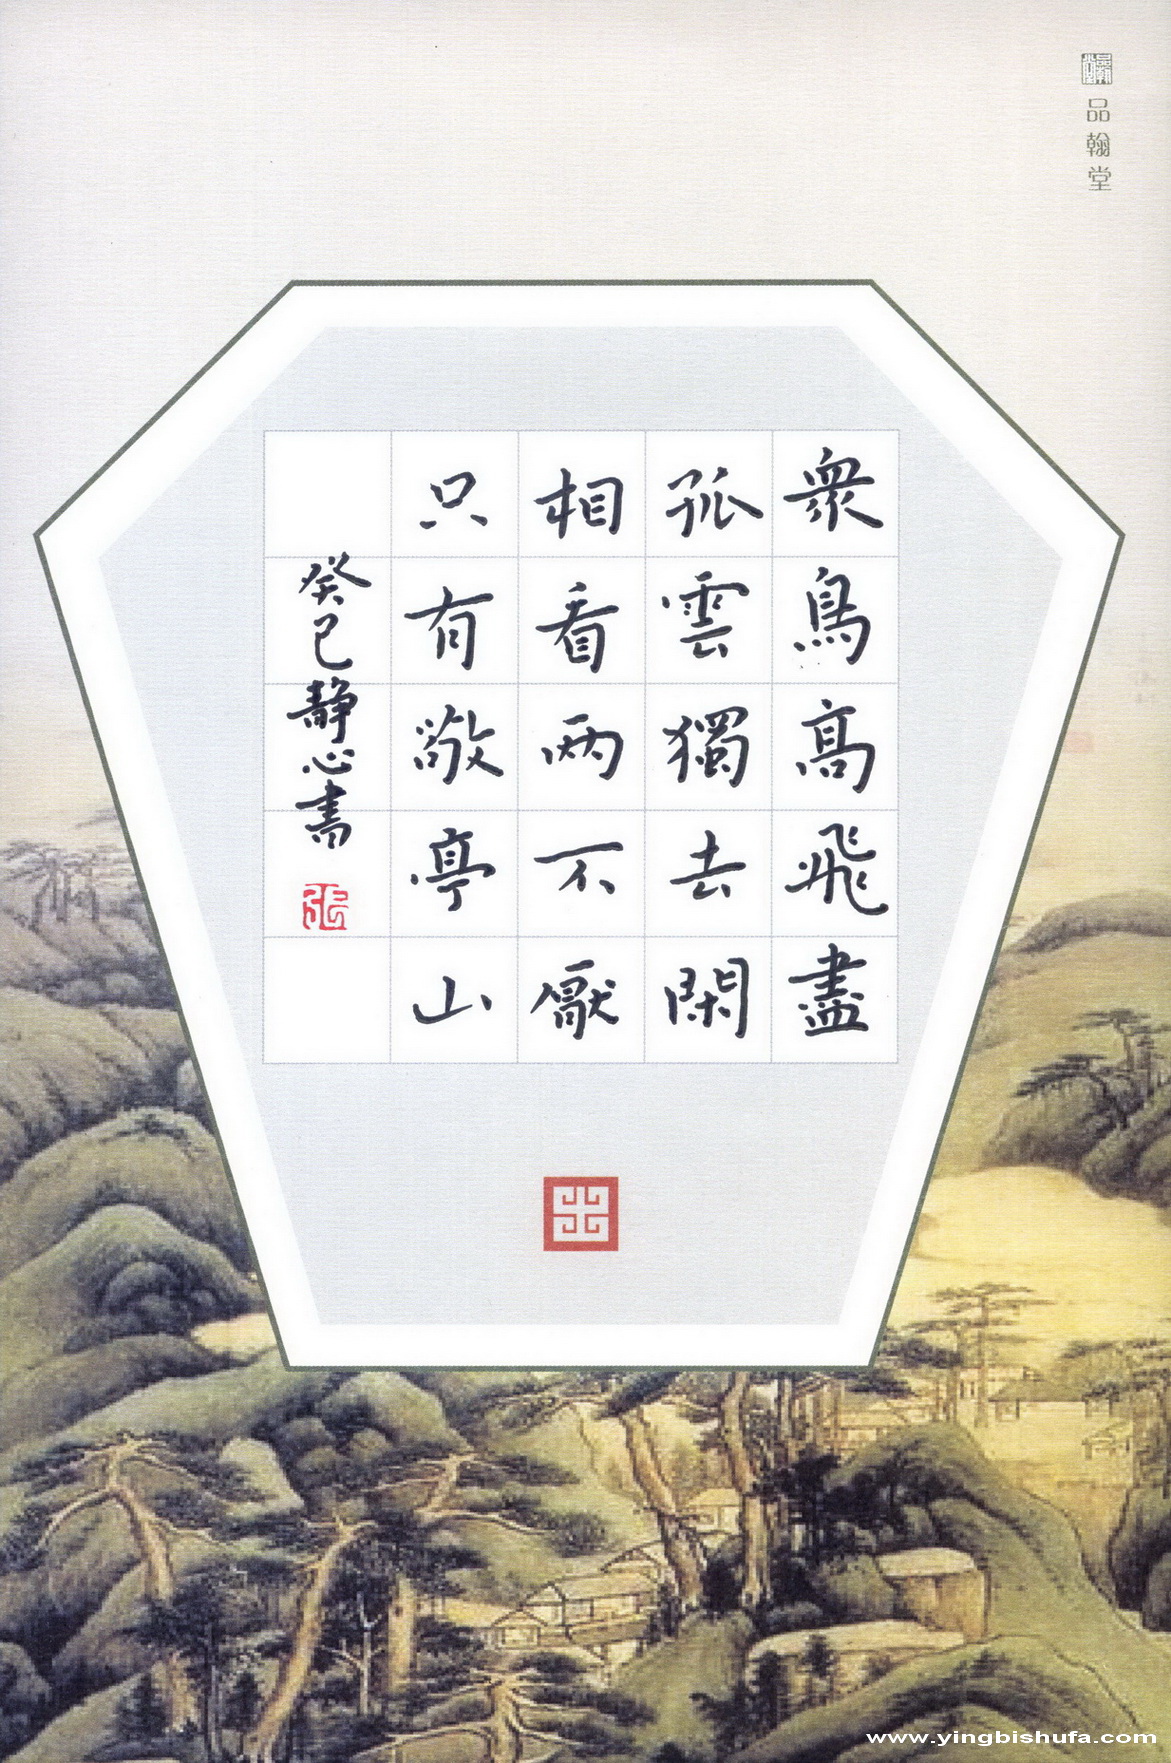 品翰堂
衆鳥高飛盡
孤雲獨去閑
相看两不厭
只有敬亭山
癸巳静心書
www.yingbishufa.com